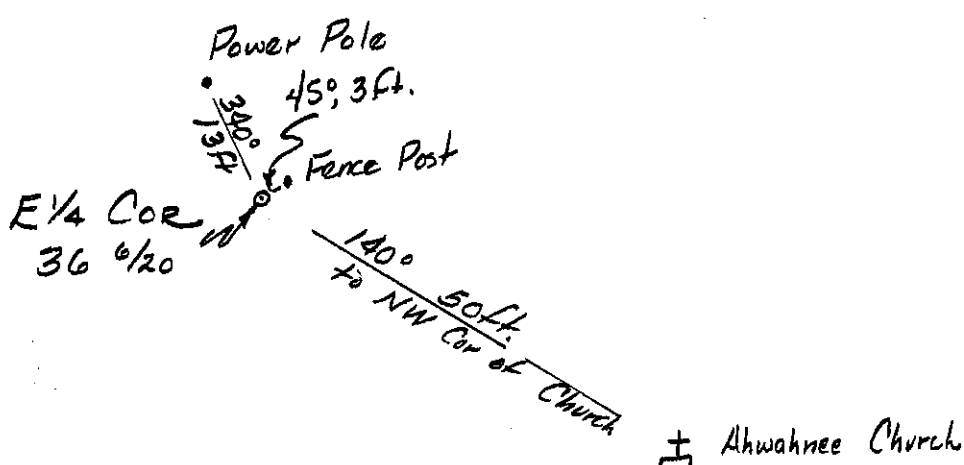 Power Pole
45°, 3ft.
340°
13ft
Fence Post
E 1/4 COR
36 6/20
140°
50ft.
to NW Cor of Church
Ahwahnee Church